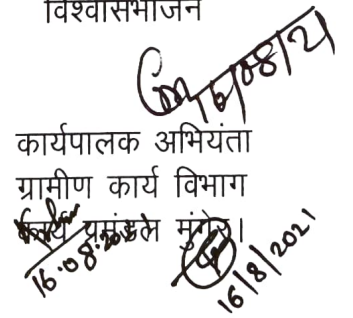 विश्वासभाजन
16/08/21
कार्यपालक अभियंता
ग्रामीण कार्य विभाग
कार्य प्रमंडल मुंगेर।
16.08.2021
16/8/2021